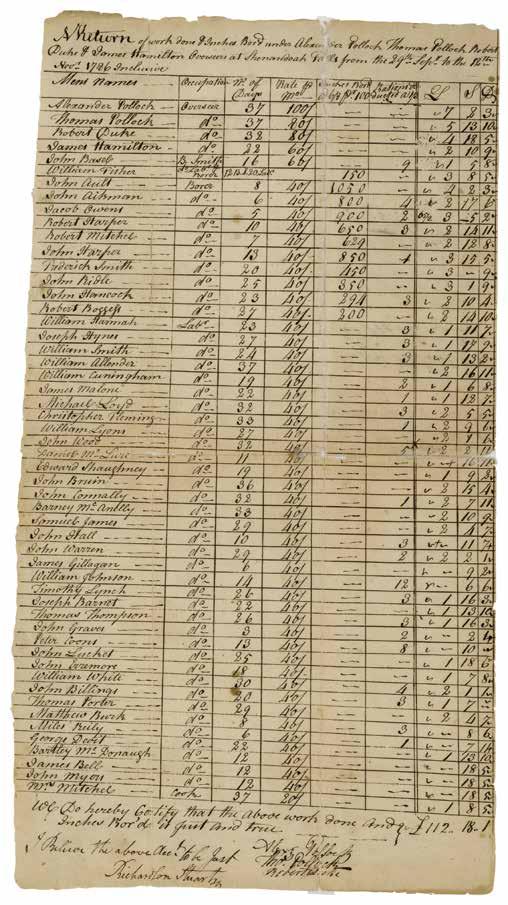 A Return of work done & Inches Bor'd under Alexander Pollock Thomas Pollock Robert
Duke & James Hamilton Overseers at Shenandoah Falls from the 29th Sept. to the 12th
Novr. 1786 Inclusive
Mens Names Occupation No. of Days Rate P Mo. Inches Bor'd £ S D
Alexander Pollock Overseer 37 100/ 7 2 3
Thomas Pollock do 37 80/ 5 13 10
Robert Duke do 32 80/ 4 18 5
James Hamilton do 22 60/ 2 10 9
John Baseb B. Smith 16 66/ 9 1 5 8
William Fisher 150 3 8 5
John Ault Borer 8 40/ 1050 4 2 3
John Aikman do 6 40/ 800 4 2 17 6
Jacob Owens do 5 40/ 900 2 3 5 2
Robert Harper do 10 40/ 650 3 2 14 11
Robert Mitchel do 7 40/ 629 2 12 8
John Harper do 13 40/ 850 4 3 15 5
Frederick Smith do 20 40/ 450 3 9
John Ridle do 25 40/ 350 3 1 9
John Hancock do 23 40/ 294 3 2 10 4
Robert Boggess do 27 40/ 200 2 14 10
William Hannah Labr. 23 40/ 3 1 11 7
Joseph Hynes do 27 40/ 3 1 17 9
William Smith do 24 40/ 3 1 13 2
William Allender do 37 40/ 2 16 11
William Cuningham do 19 40/ 2 1 6 8
James Malone do 22 40/ 1 1 12 7
Michael Loyd do 32 40/ 3 2 5 5
Christopher Fleming do 33 40/ 1 2 9 6
William Lyons do 27 40/ 2 1 6
John Wood do 32 40/ 2
Daniel McLure do 11 40/ 16 11
Edward Shaughney do 19 40/ 1 9 2
John Bruin do 36 40/ 2 15 4
John Connally do 32 40/ 1 2 7 11
Barney McAnlly do 33 40/ 2 10 9
Samuel James do 29 40/ 2 4 7
John Hall do 10 40/ 3 11 7
John Warren do 29 40/ 2 2 2 1
James Gillagan do 6 40/ 9 2
William Johnson do 14 40/ 12 6 6
Timothy Lynch do 26 40/ 3 1 16 3
Joseph Barnet do 22 40/ 1 13 10
Thomas Thompson do 26 40/ 3 1 16 3
John Graves do 3 40/ 2 2 4
Peter Coons do 13 40/ 8 10
John Luchet do 25 40/ 1 18 6
John Evemore do 18 40/ 1 7 8
William White do 30 40/
John Billings do 20 40/ 4 2 1 1
Thomas Porter do 29 40/ 3 1 7
Matthew Burk do 8 40/ 2 4 7
Miles Rily do 6 40/ 3 8 6
George Devit do 22 40/ 1 7 11
Bartley McDonaugh do 12 40/ 1 13 10
James Bell do 12 40/ 18 5
John Myers do 12 40/ 18 5
Mrs. Mitchel Cook 37 20/ 18 5
1 8 5
We Do hereby Certify that the above work done And £112 18 1
Inches Bor'd is just and true
I Believe the above Acct. to be just
Thos. Pollock
Richardson Stuart Robert Duke